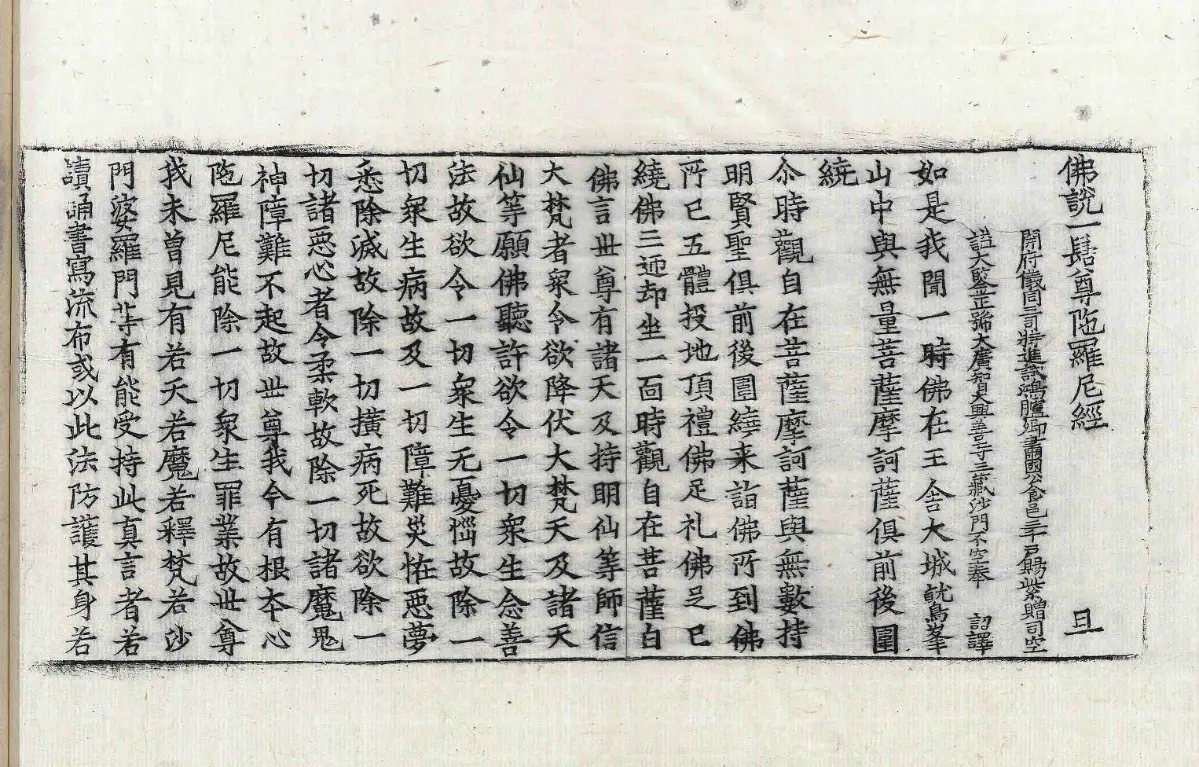 佛說一髻尊陁羅尼經 且
開府儀同三司特進試鴻臚卿肅國公食邑三千戶賜紫贈司空
謚大鑒正號大廣智大興善寺三藏沙門不空奉 詔譯
如是我聞一時佛在王舍大城鷲峯
山中與無量菩薩摩訶薩俱前後圍
繞
尒時觀自在菩薩摩訶薩與無數持
明賢聖俱前後圍繞来詣佛所到佛
所已五體投地頂禮佛足礼佛足已
繞佛三迊却坐一面時觀自在菩薩白
佛言世尊有諸天及持明仙等師信
大梵者衆今欲降伏大梵天及諸天
仙等願佛聽許欲令一切衆生念善
法故欲令一切衆生无憂惱故除一
切衆生病故及一切障難災恠惡夢
悉除滅故除一切橫病死故欲除一
切諸惡心者令柔軟故除一切諸魔鬼
神障難不起故世尊我今有根本心
陁羅尼能除一切衆生罪業故世尊
我未曾見有若天若魔若釋梵若沙
門婆羅門等有能受持此真言者若
讀誦書寫流布或以此法防護其身若